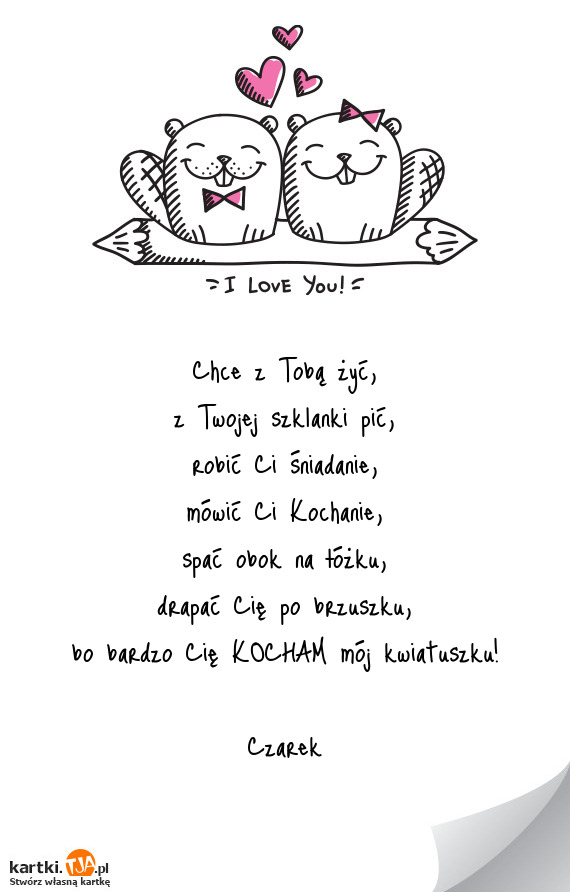 I LOVE YOU!
Chce z Tobą żyć,
z Twojej szklanki pić,
robić Ci śniadanie,
mówić Ci Kochanie,
spać obok na łóżku,
drapać Cię po brzuszku,
bo bardzo Cię KOCHAM mój kwiatuszku!
Czarek
kartki.TJA.pl
Stwórz własną kartkę